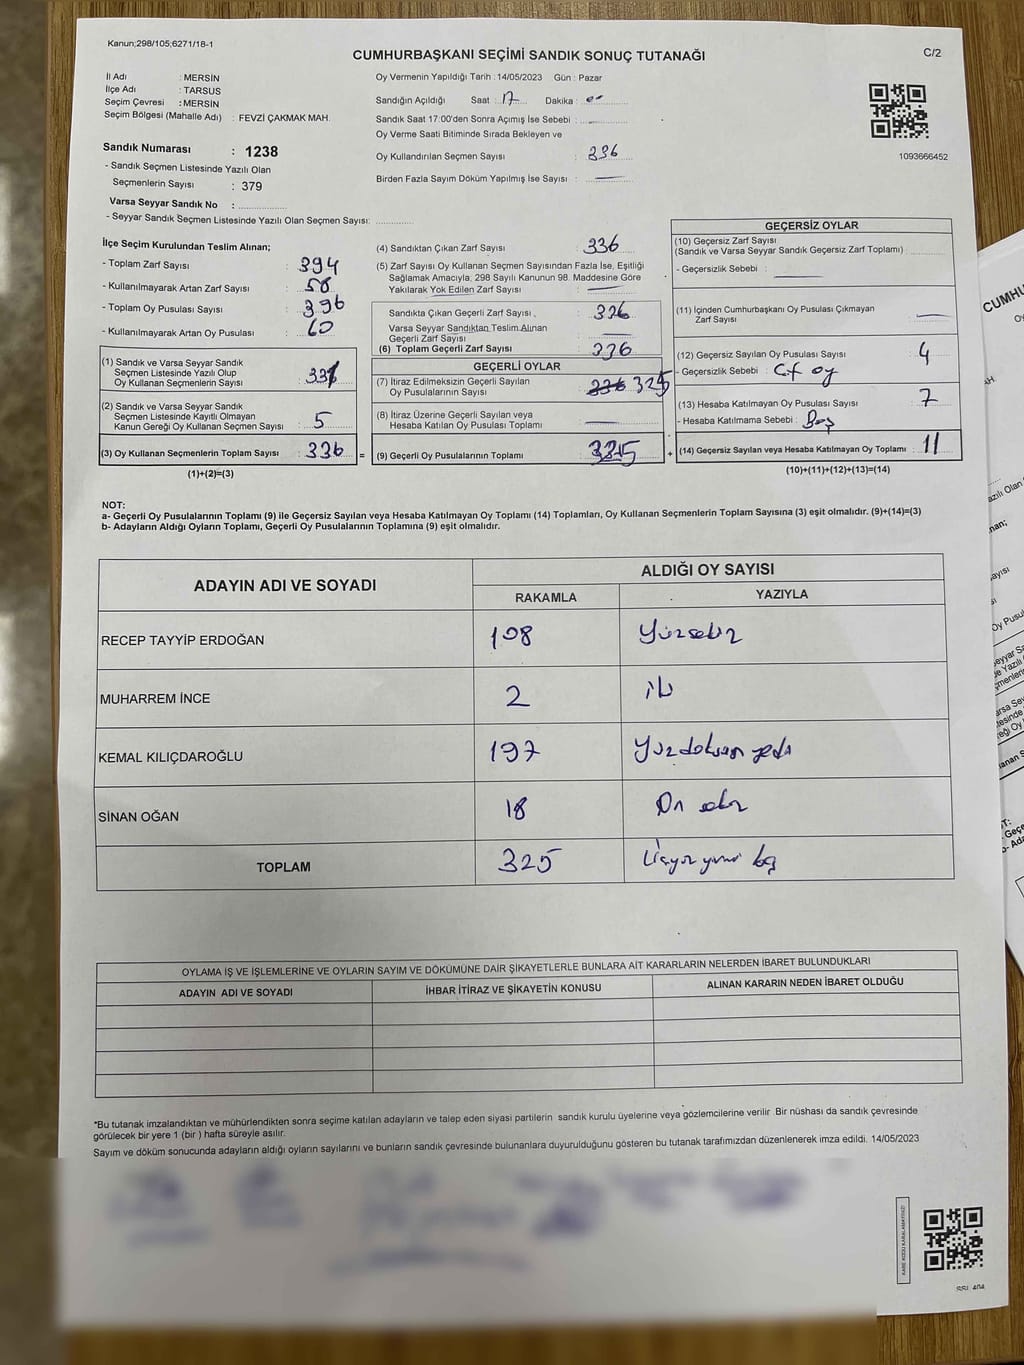 Kanun;298/105;6271/18-1
CUMHURBAŞKANI SEÇİMİ SANDIK SONUÇ TUTANAĞI
C/2
İl Adı : MERSİN
İlçe Adı : TARSUS
Seçim Çevresi : MERSİN
Seçim Bölgesi (Mahalle Adı) : FEVZİ ÇAKMAK MAH.
Sandık Numarası : 1238
- Sandık Seçmen Listesinde Yazılı Olan
Seçmenlerin Sayısı : 379
Varsa Seyyar Sandık No :
- Seyyar Sandık Seçmen Listesinde Yazılı Olan Seçmen Sayısı:
Oy Vermenin Yapıldığı Tarih : 14/05/2023 Gün : Pazar
Sandığın Açıldığı Saat : 17 Dakika :
Sandık Saat 17:00'den Sonra Açımış İse Sebebi :
Oy Verme Saati Bitiminde Sırada Bekleyen ve
Oy Kullandırılan Seçmen Sayısı : 336
Birden Fazla Sayım Döküm Yapılmış İse Sayısı :
1093666452
İlçe Seçim Kurulundan Teslim Alınan;
- Toplam Zarf Sayısı : 394
- Kullanılmayarak Artan Zarf Sayısı : 58
- Toplam Oy Pusulası Sayısı : 396
- Kullanılmayarak Artan Oy Pusulası : 60
(1) Sandık ve Varsa Seyyar Sandık
Seçmen Listesinde Yazılı Olup
Oy Kullanan Seçmenlerin Sayısı : 331
(2) Sandık ve Varsa Seyyar Sandık
Seçmen Listesinde Kayıtlı Olmayan
Kanun Gereği Oy Kullanan Seçmen Sayısı : 5
(3) Oy Kullanan Seçmenlerin Toplam Sayısı : 336 =
(1)+(2)=(3)
(4) Sandıktan Çıkan Zarf Sayısı : 336
(5) Zarf Sayısı Oy Kullanan Seçmen Sayısından Fazla İse, Eşitliği
Sağlamak Amacıyla; 298 Sayılı Kanunun 98. Maddesine Göre
Yakılarak Yok Edilen Zarf Sayısı :
Sandıkta Çıkan Geçerli Zarf Sayısı : 336
Varsa Seyyar Sandıktan Teslim Alınan
Geçerli Zarf Sayısı :
(6) Toplam Geçerli Zarf Sayısı : 336
GEÇERLİ OYLAR
(7) İtiraz Edilmeksizin Geçerli Sayılan
Oy Pusulasının Sayısı : 336 325
(8) İtiraz Üzerine Geçerli Sayılan veya
Hesaba Katılan Oy Pusulası Toplamı :
(9) Geçerli Oy Pusulalarının Toplamı : 325 +
GEÇERSİZ OYLAR
(10) Geçersiz Zarf Sayısı
(Sandık ve Varsa Seyyar Sandık Geçersiz Zarf Toplamı) :
- Geçersizlik Sebebi :
(11) İçinden Cumhurbaşkanı Oy Pusulası Çıkmayan
Zarf Sayısı :
(12) Geçersiz Sayılan Oy Pusulası Sayısı : 4
- Geçersizlik Sebebi : Çift oy
(13) Hesaba Katılmayan Oy Pusulası Sayısı : 7
- Hesaba Katılmama Sebebi : Boş
(14) Geçersiz Sayılan veya Hesaba Katılmayan Oy Toplamı : 11
(10)+(11)+(12)+(13)=(14)
NOT:
a- Geçerli Oy Pusulalarının Toplamı (9) ile Geçersiz Sayılan veya Hesaba Katılmayan Oy Toplamı (14) Toplamları, Oy Kullanan Seçmenlerin Toplam Sayısına (3) eşit olmalıdır. (9)+(14)=(3)
b- Adayların Aldığı Oyların Toplamı, Geçerli Oy Pusulalarının Toplamına (9) eşit olmalıdır.
ADAYIN ADI VE SOYADI ALDIĞI OY SAYISI
RAKAMLA YAZIYLA
RECEP TAYYİP ERDOĞAN 108 Yüzsekiz
MUHARREM İNCE 2 iki
KEMAL KILIÇDAROĞLU 197 Yüzdoksan yedi
SİNAN OĞAN 18 On sekiz
TOPLAM 325 Üçyüz yirmi beş
OYLAMA İŞ VE İŞLEMLERİNE VE OYLARIN SAYIM VE DÖKÜMÜNE DAİR ŞİKAYETLERLE BUNLARA AİT KARARLARIN NELERDEN İBARET BULUNDUKLARI
ADAYIN ADI VE SOYADI İHBAR İTİRAZ VE ŞİKAYETİN KONUSU ALINAN KARARIN NEDEN İBARET OLDUĞU
*Bu tutanak imzalandıktan ve mühürlendikten sonra seçime katılan adayların ve talep eden siyasi partilerin sandık kurulu üyelerine veya gözlemcilerine verilir Bir nüshası da sandık çevresinde
görülecek bir yere 1 (bir ) hafta süreyle asılır.
Sayım ve döküm sonucunda adayların aldığı oyların sayılarını ve bunların sandık çevresinde bulunanlara duyurulduğunu gösteren bu tutanak tarafımızdan düzenlenerek imza edildi. 14/05/2023
KARE KODU KARALAMAYINIZ!